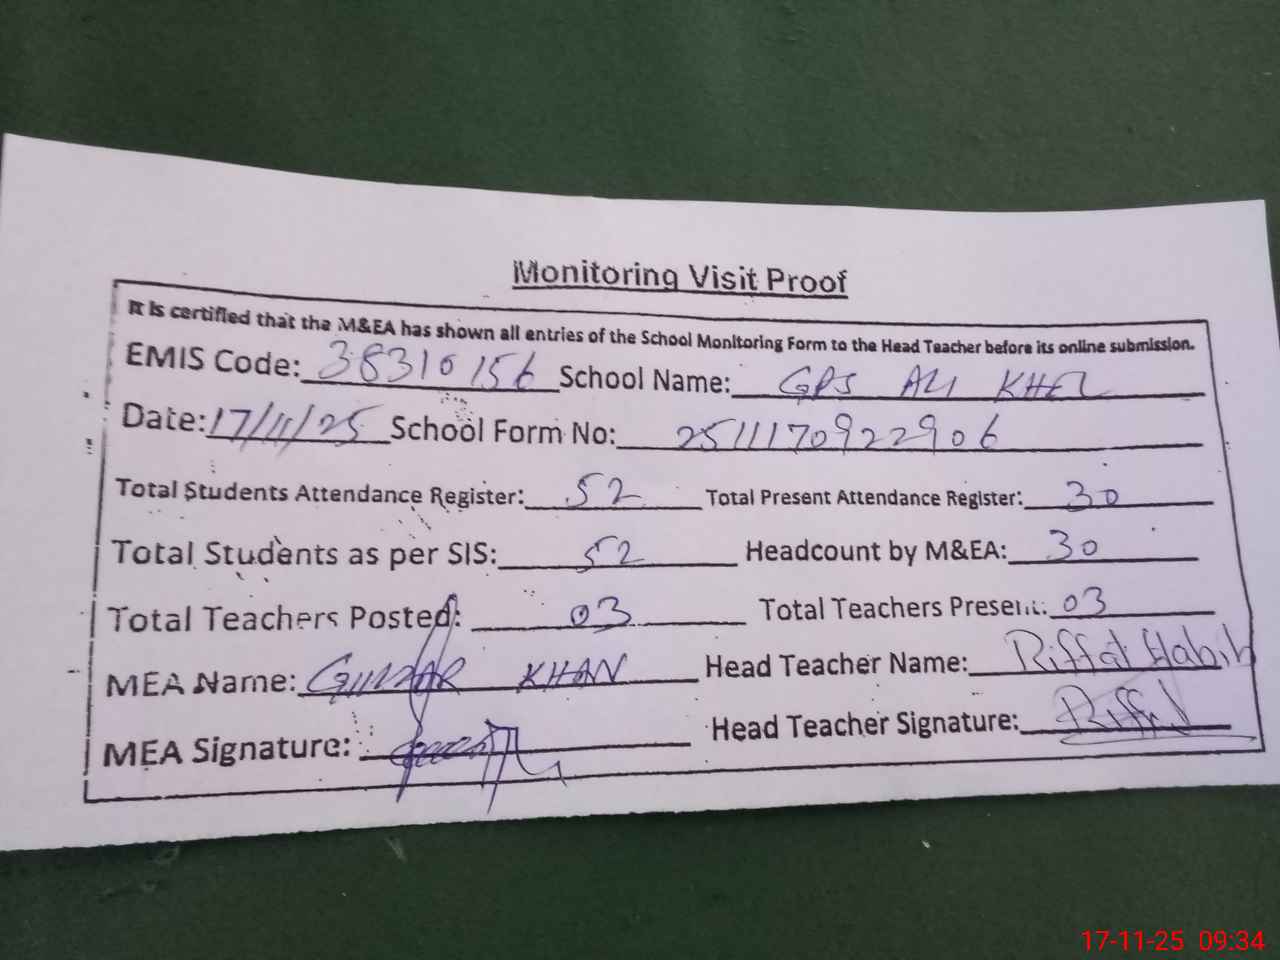 Monitoring Visit Proof
It is certified that the M&EA has shown all entries of the School Monitoring Form to the Head Teacher before its online submission.
EMIS Code: 38310156 School Name: GPS ALI KHEL
Date: 17/11/25 School Form No: 2511170922906
Total Students Attendance Register: 52 Total Present Attendance Register: 30
Total Students as per SIS: 52 Headcount by M&EA: 30
Total Teachers Posted: 03 Total Teachers Present: 03
MEA Name: GULZAR KHAN Head Teacher Name: Riffat Habib
MEA Signature: Head Teacher Signature: Riffat
17-11-25 09:34